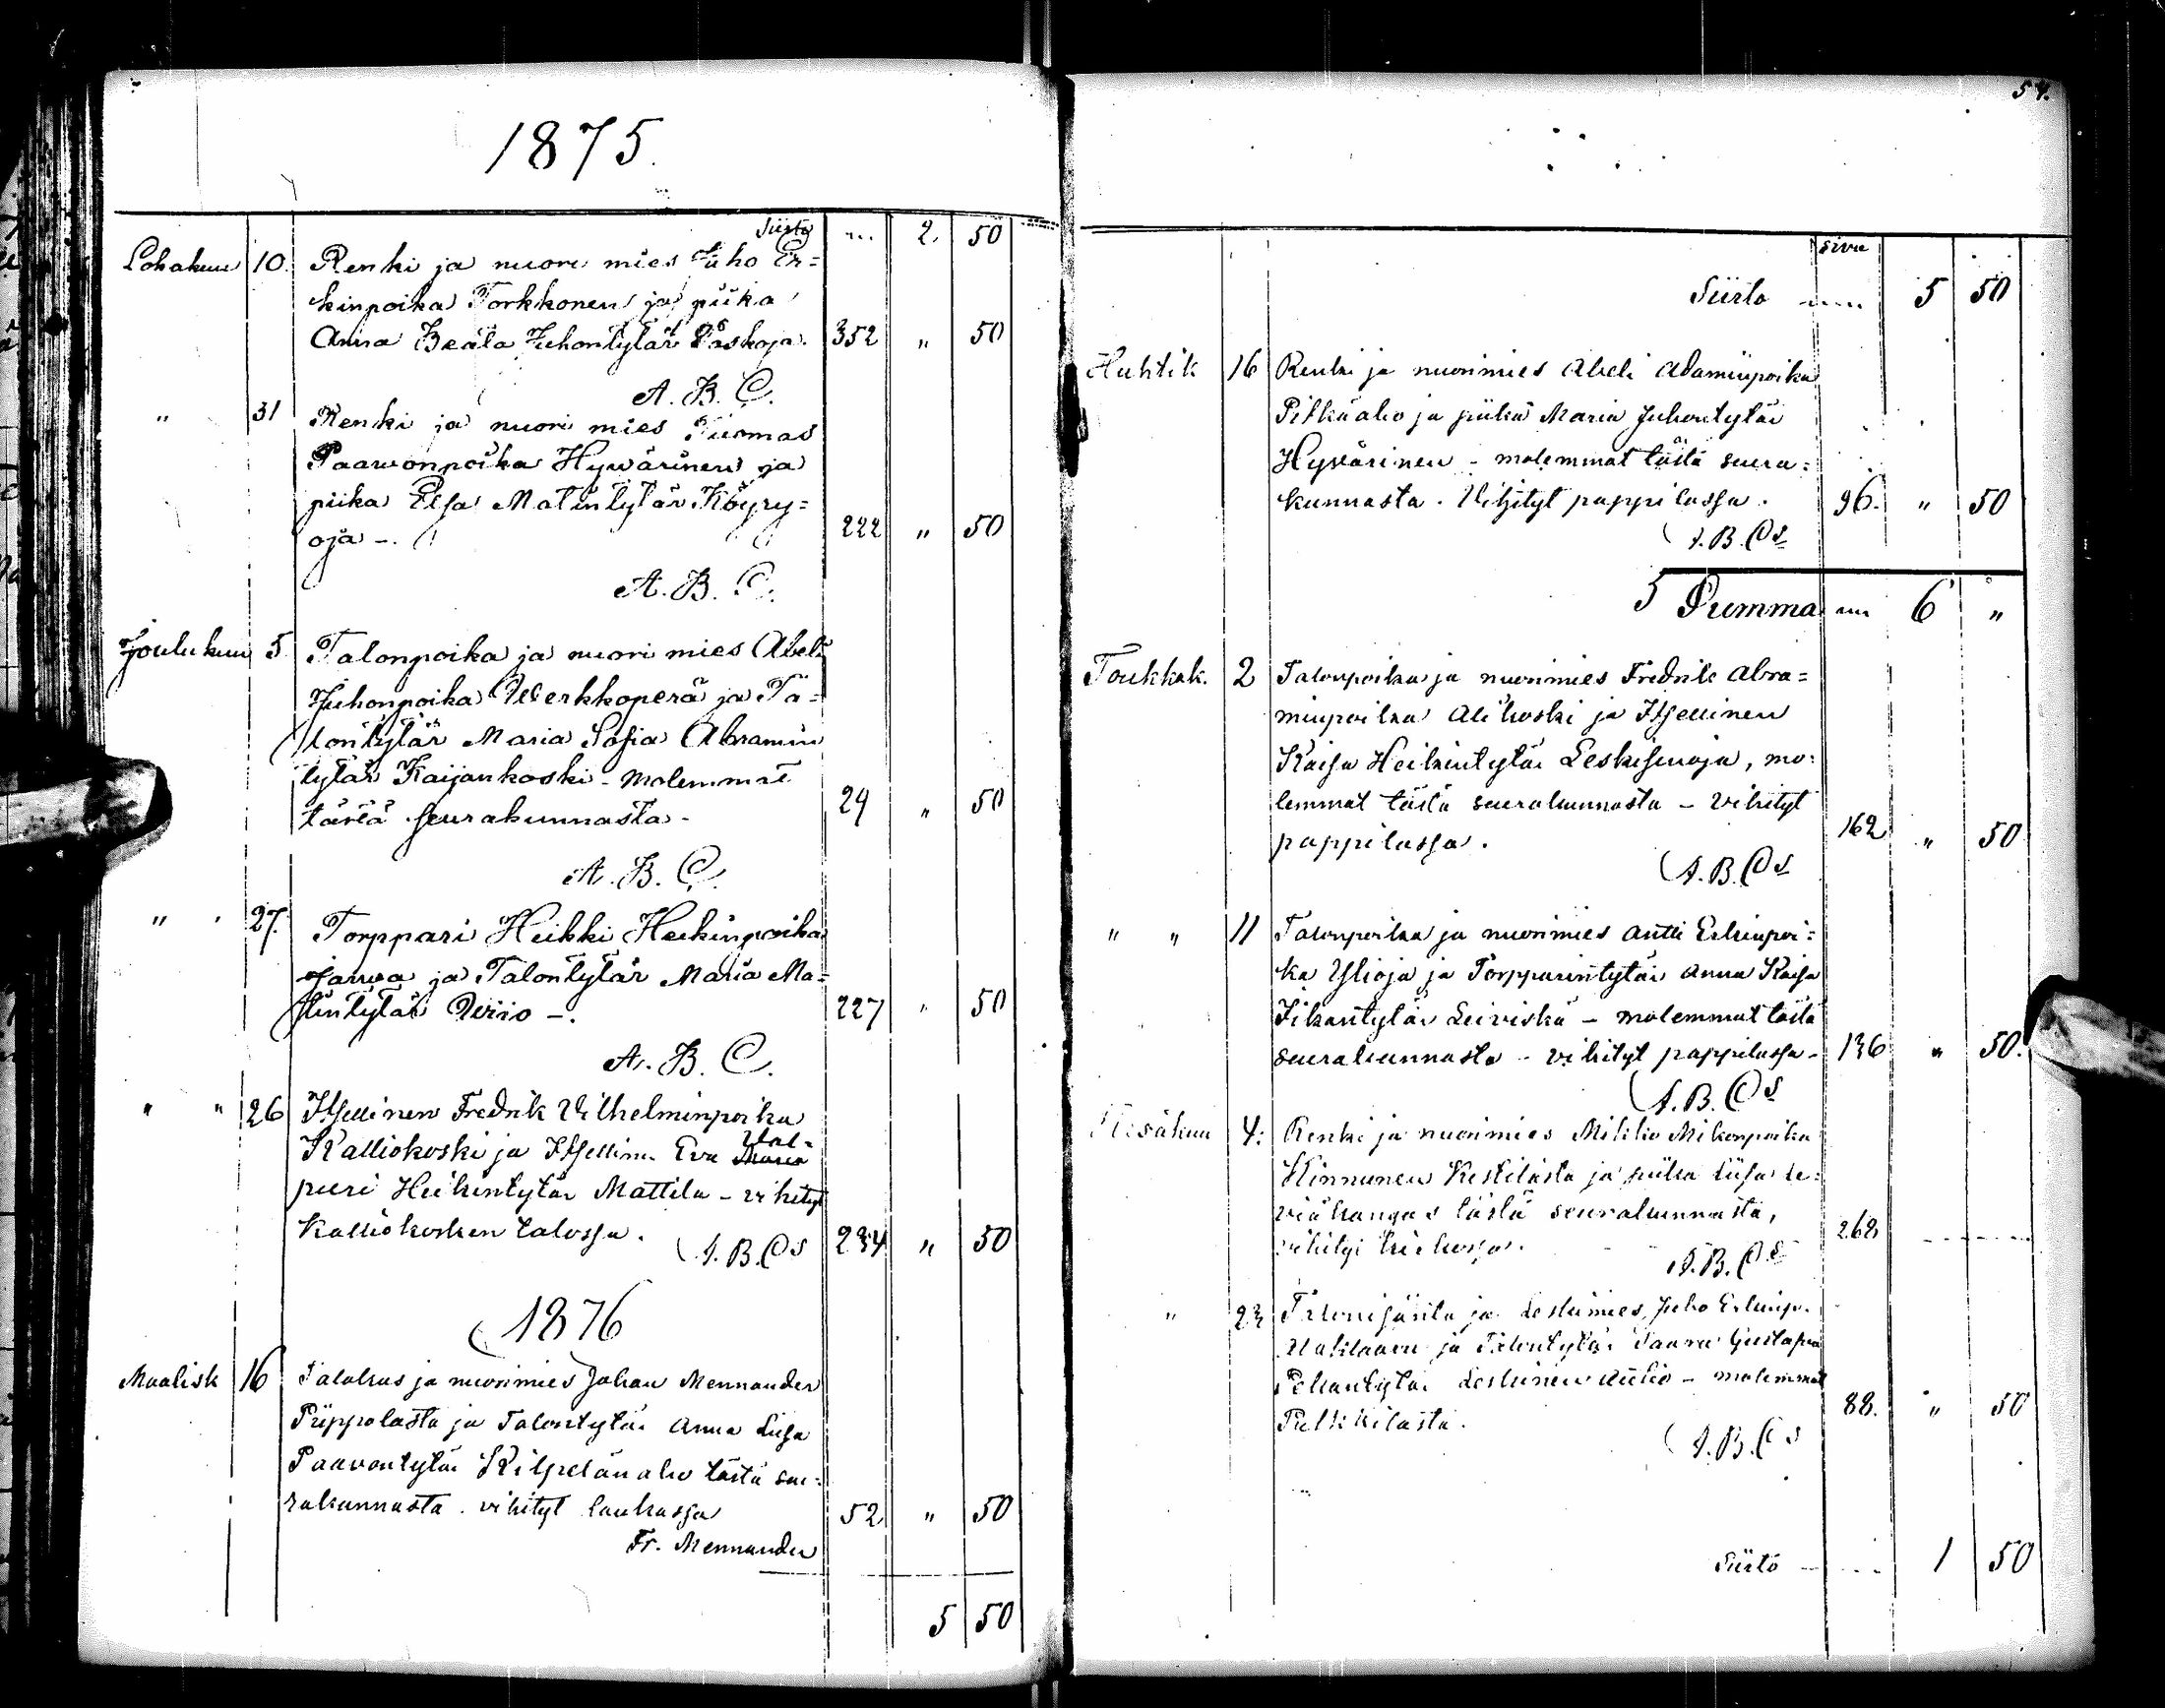 1875.
Siirto ... 2. 50
Lokakuu 10. Renki ja nuori mies Juho Er=
kinpoika Torkkonen ja piika
Anna Beata Juhontytär Paskoja. 352 " 50
A. B. C.
" 31 Renki ja nuori mies Tuomas
Paawonpoika Hywärinen ja
piika Elsa Matintytär Köyry=
oja -. 222 " 50
A. B. C.
Joulukuu 5 Talonpoika ja nuori mies Abeli
Juhonpoika Werkkoperä ja Ta=
lontytär Maria Sofia Abramin
tytär Kaijankoski - molemmat
tästä seurakunnasta - 24 " 50
A. B. C.
" 27. Torppari Heikki Heikinpoika
Jarwa ja Talontytär Maria Ma=
tintytär 227 " 50
A. B. C.
" " 26 Itsellinen Fredrik Vilhelminpoika
Kalliokoski ja Itsellinen Eva Maria Val=
puri Heikintytär Mattila - vihityt
Kalliokosken talossa. 234 " 50
A.B.Cs
1876
Maalisk 16 ja nuorimies Johan Mennander
Piippolasta ja Talontytär Anna Liisa
Paavontytär Kilpelänaho tästä seu=
rakunnasta. vihityt 52 " 50
Fr. Mennander
5 50
54.
sivu
Siirto ..... 5 50
Huhtik 16 Renki ja nuorimies Abeli Adaminpoika
Pitkäaho ja piika Maria Juhontytär
Hyvärinen - molemmat tästä seura=
kunnasta. Vihityt pappilassa. 96. " 50
A.B.Cs
Summa ... 6 "
Toukkok. 2 Talonpoika ja nuorimies Fredrik Abra=
minpoika Alikoski ja Itsellinen
Kaisa Heikintytär Leskisenoja, mo=
lemmat tästä seurakunnasta - vihityt
pappilassa. 162 " 50
A.B.Cs
" " 11 Talonpoika ja nuorimies Antti Erkinpoi=
ka Ylioja ja Torpparintytär Anna Kaisa
Iikantytär Leiviskä - molemmat tästä
seurakunnasta - vihityt pappilassa - 136 " 50.
A.B.Cs
Kesäkuu 4. Renki ja nuorimies Mikko Mikonpoika
Kinnunen Kestilästä ja piika Liisa Le=
väkangas tästä seurakunnasta,
vihityt kirkossa. 268
A.B.Cs
" 23 Talonisäntä ja leskimies Juho Erkinp.
ja Talontytär Saara Gustava
Pekantytär Leskinen - molemmat
Pulkkilasta. 88. " 50
A.B.Cs
Siirto - ... 1 50